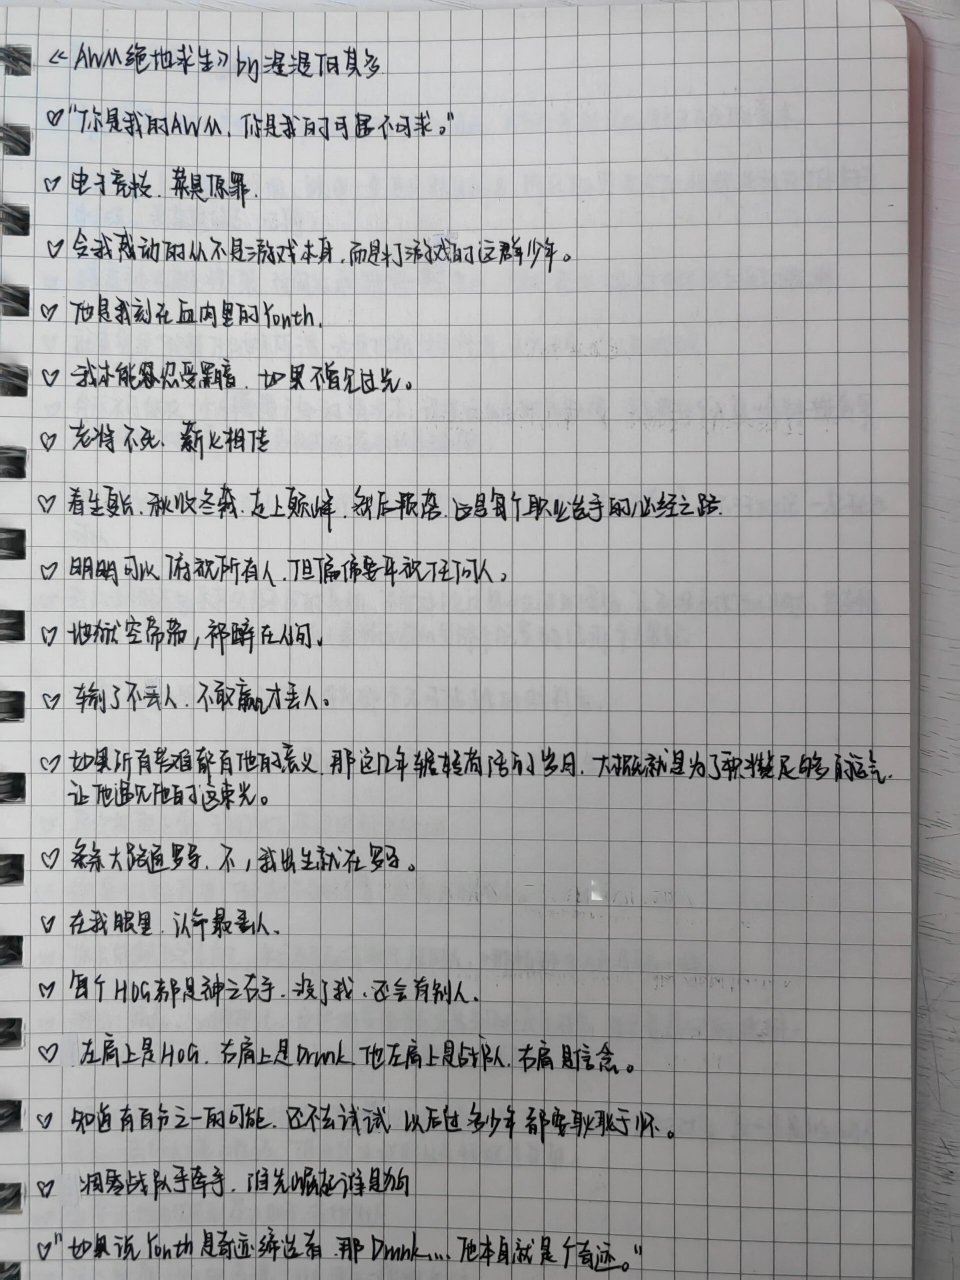 《AWM绝地求生》by漫漫何其多
♡"你是我的AWM，你是我的可遇不可求。"
♡ 电子竞技，菜是原罪．
♡ 令我感动的从不是游戏本身，而是打游戏的这群少年。
♡ 他是我刻在血肉里的Youth．
♡ 我本能容忍受黑暗，如果不曾见过光。
♡ 老将不死，薪火相传
♡ 春生夏长，秋收冬藏，走上巅峰，然后陨落，这是每个职业选手的必经之路．
♡ 明明可以俯视所有人，但偏偏要平视任何人。
♡ 地狱空荡荡，祁醉在人间。
♡ 输了不丢人，不敢赢才丢人。
♡ 如果所有苦难都有他的意义，那这几年辗转苟活的岁月，大概就是为了积攒足够多的运气，
让他遇见他的这束光。
♡ 条条大路通罗马，不，我出生就在罗马。
♡ 在我眼里，认命最丢人．
♡ 每个HOG都是神之右手，没了我，还会有别人．
♡ 左肩上是HOG，右肩上是Drunk，他左肩上是战队，右肩是信念。
♡ 知道有百分之一的可能，还不去试试，以后过多少年都要耿耿于怀。
♡ 凋零战队手牵手，谁先崛起谁是狗
♡"如果说Youth是奇迹缔造者，那Drunk...．他本身就是个奇迹。"